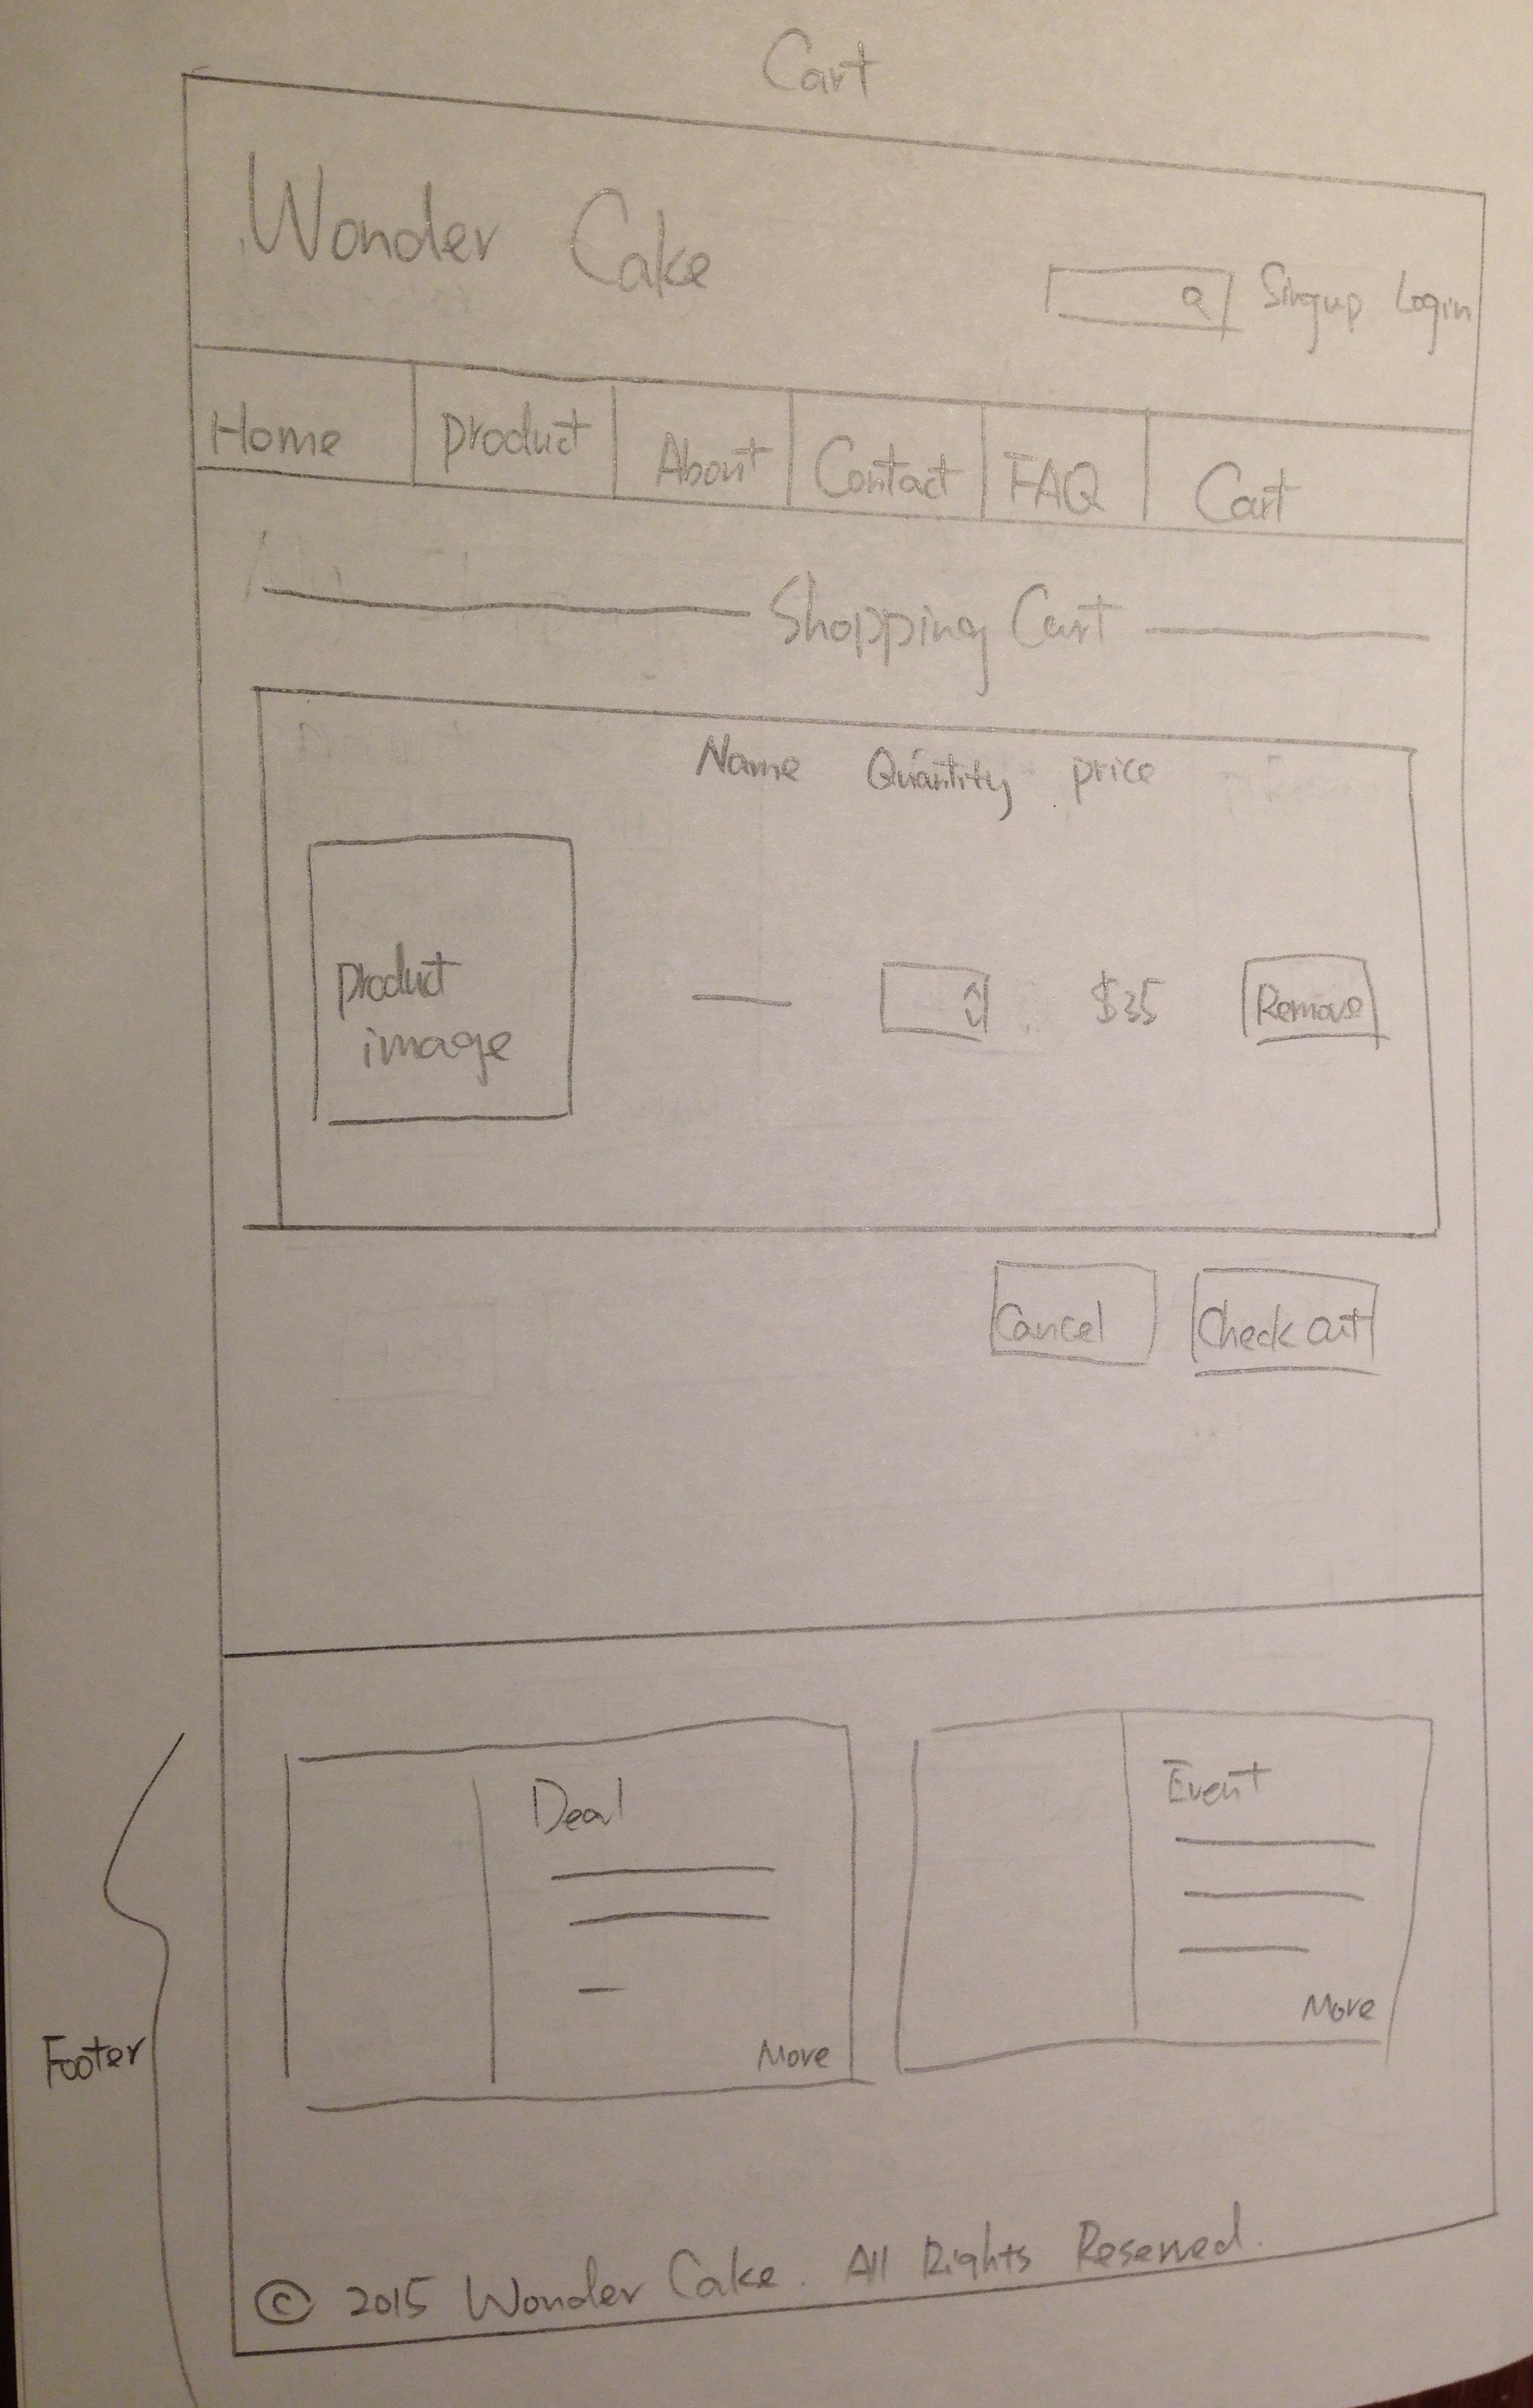 Cart
Wonder Cake
Singup Login
Home product About Contact FAQ Cart
Shopping Cart
Name Quantity price
product
image
$35 Remove
Cancel Check out
Deal
Event
More
More
Footer
© 2015 Wonder Cake. All Rights Reserved.